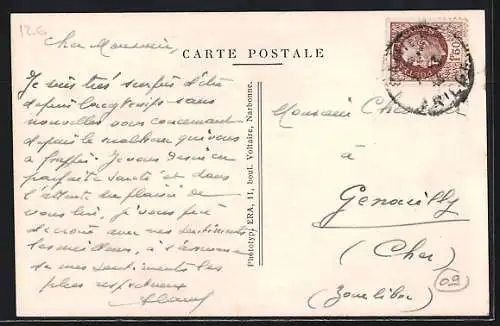 12.6
Cher Monsieur,
CARTE POSTALE
Je suis très surpris d'être
depuis longtemps sans
nouvelles vous concernant
depuis le malheur qui vous
a frappé. Je vous désire en
parfaite santé et dans
l'attente du plaisir de
vous lire, je vous prie
de croire avec mes sentiments
les meilleurs, à l'assurance
de mes sentiments les
plus respectueux
Phototypi. ERA, 11, boul. Voltaire, Narbonne.
1F50
Monsieur
à
Genouilly
(Cher)
(Zone libre)
09